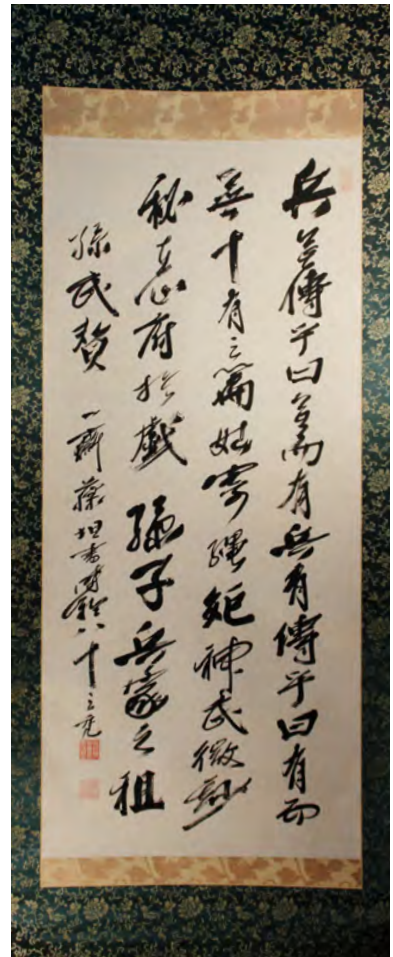 兵無傳乎曰無而有兵有傳乎曰有而
無十有三篇姑寄繩矩神武微妙
秘在心府於戲孫子兵家之祖
孫武賛 一齋藤坦書時齡八十